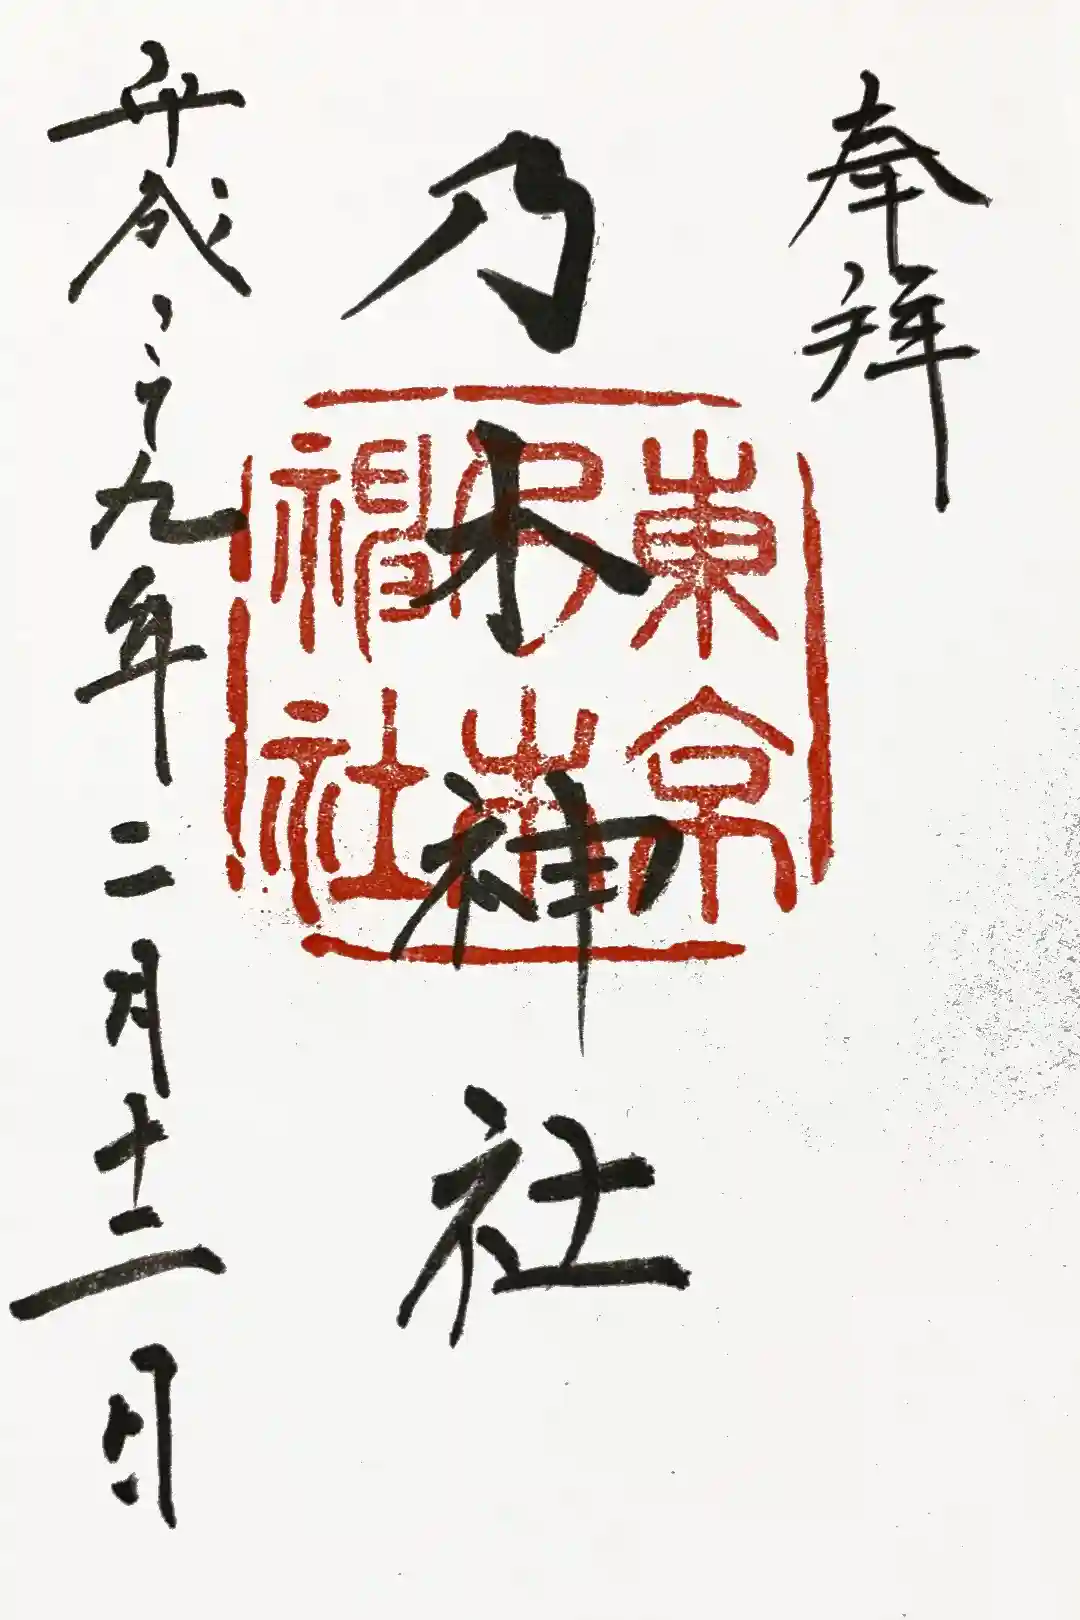 奉拝
乃木神社
平成二十九年二月十二日
東京
乃木
神社